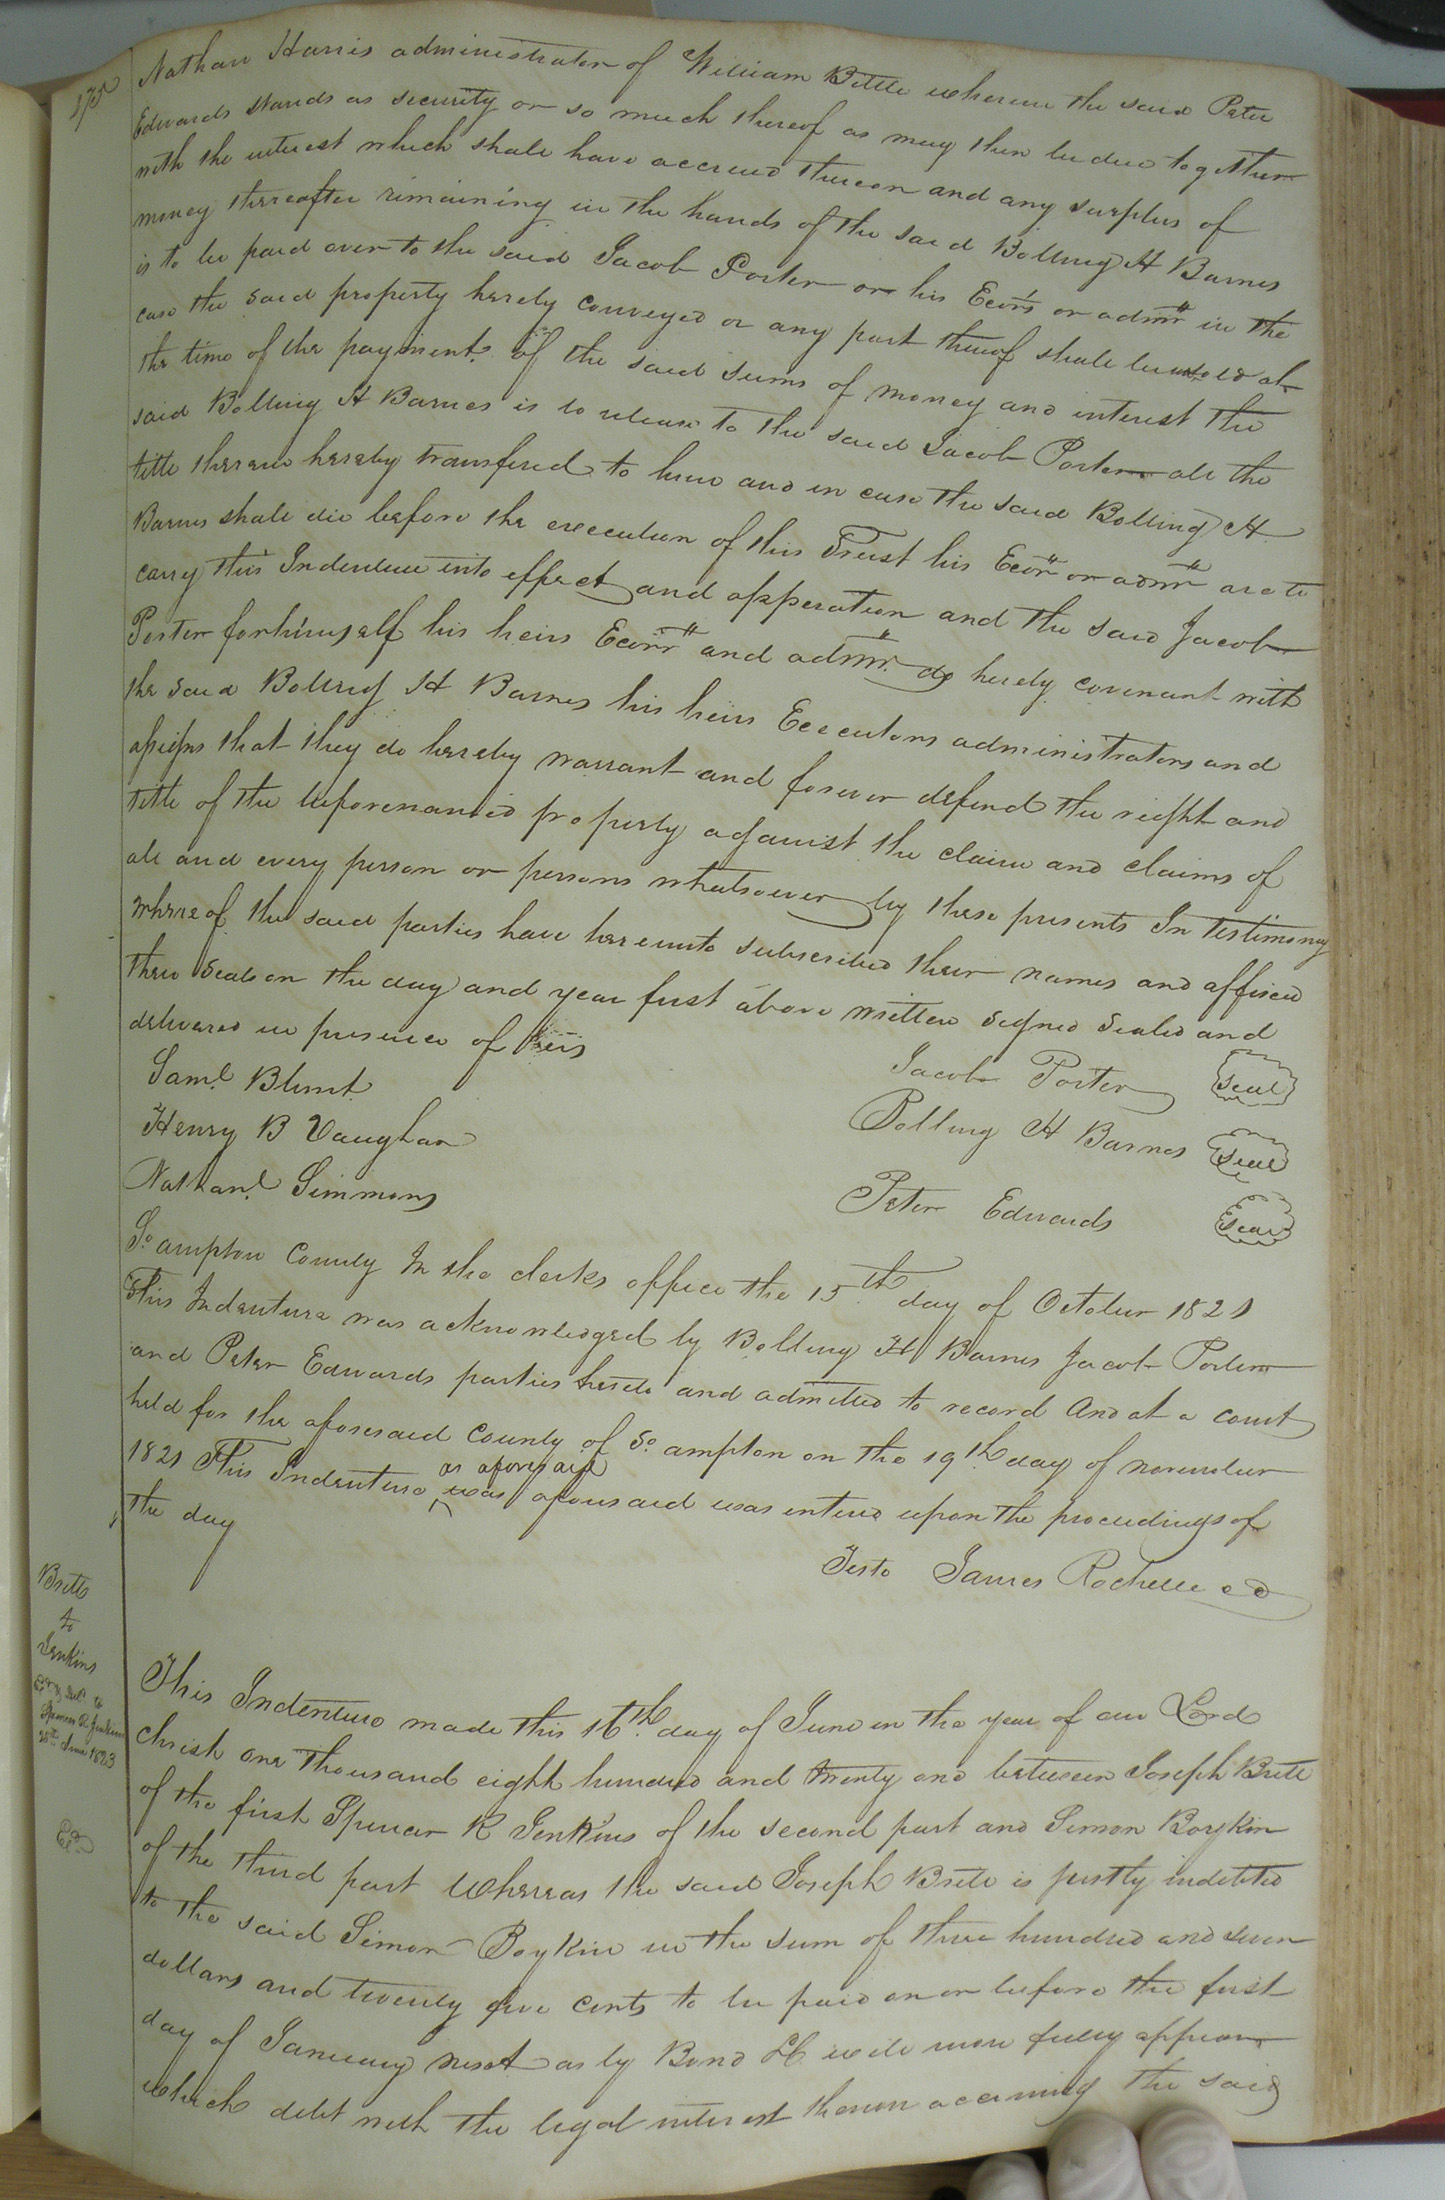 Nathan Harris administrator of William Bittle wherein the said Peter
Edwards stands as security or so much thereof as may then be due together
with the interest which shall have accrued thereon and any surplus of
money thereafter remaining in the hands of the said Bolling H Barnes
is to be paid over to the said Jacob Porter or his Ecors or admrs in the
case the said property hereby conveyed or any part thereof shall be unsold at
the time of the payment of the said sums of money and interest the
said Bolling H Barnes is to release to the said Jacob Porter all the
title therein hereby transfered to him and in case the said Bolling H
Barnes shall die before the execution of this Trust his Ecors or admrs are to
carry this Indenture into effect and opperation and the said Jacob
Porter for himself his heirs Ecors and admrs do hereby covenant with
the said Bolling H Barnes his heirs Executors administrators and
assigns that they do hereby warrant and forever defend the right and
title of the beforenamed property against the claim and claims of
all and every person or persons whatsoever by these presents In testimony
whereof the said parties have hereunto subscribed their names and affixed
their seals on the day and year first above written signed sealed and
delivered in presence of
Jacob Porter Seal
Saml Blunt
Bolling H Barnes Seal
Henry B Vaughan
Peter Edwards Seal
Nathanl Simmons
So ampton County In the clerks office the 15th day of October 1821
This Indenture was acknowledged by Bolling H Barnes Jacob Porter
and Peter Edwards parties hereto and admitted to record And at a court
held for the aforesaid County of So ampton on the 19th day of november
1821 This Indenture as aforesaid was aforesaid was entered upon the proceedings of
the day
Teste James Rochelle
Britt
to
Jenkins
Spencer R Jenkins
25th June 1823
This Indenture made this 16th day of June in the year of our Lord
Christ one thousand eight hundred and twenty one between Joseph Britt
of the first Spencer R Jenkins of the second part and Simon Boykin
of the third part Whereas the said Joseph Britt is justly indebted
to the said Simon Boykin in the sum of three hundred and seven
dollars and twenty five cents to be paid on or before the first
day of January next as by Bond &C will more fully appear
which debt with the legal interest thereon accruing the said